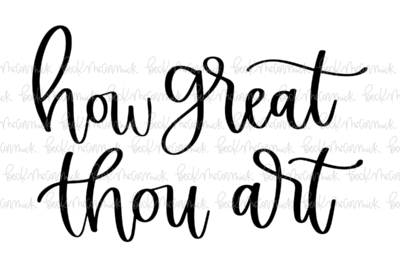 how great
thou art